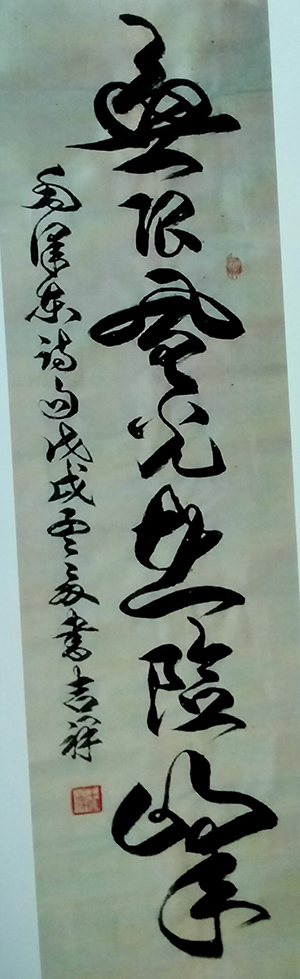 無限風光在險峰
毛澤東詩句戊戌雲海書吉祥